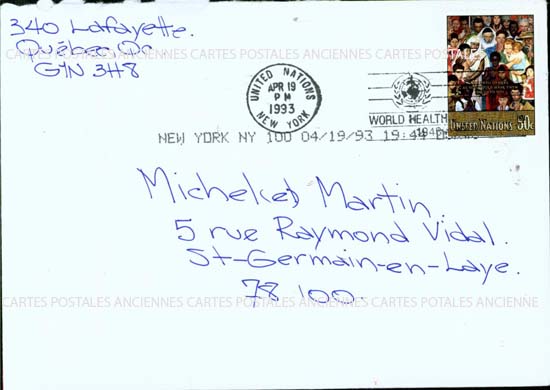 340 Lafayette.
Québec Qc
G1N 3H8
UNITED NATIONS
APR 19
PM
1993
NEW YORK
WORLD HEALTH
UNITED NATIONS 50c
NEW YORK NY 100 04/19/93 19:44
Michel(e) Martin.
5 rue Raymond Vidal.
St-Germain-en-Laye.
78 100.
CARTES POSTALES ANCIENNES CARTES POSTALES ANCIENNES CARTES POSTALES ANCIENNE
CARTES POSTALES ANCIENNES CARTES POSTALES ANCIENNES CARTES POSTALES ANCIENNE